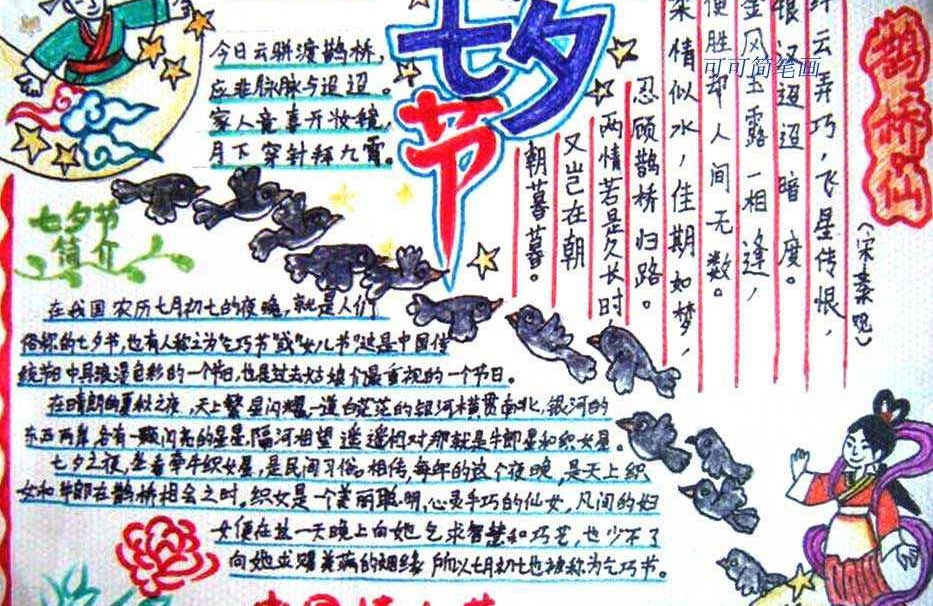 七夕节
今日云骈渡鹊桥，
应非脉脉与迢迢。
家人竟喜开妆镜，
月下穿针拜九霄。
鹊桥仙
（宋秦观）
纤云弄巧，飞星传恨，
银汉迢迢暗度。
金风玉露一相逢，
便胜却人间无数。
柔情似水，佳期如梦，
忍顾鹊桥归路。
两情若是久长时
又岂在朝
朝暮暮。
可可简笔画
七夕节
简介
在我国农历七月初七的夜晚，就是人们
俗称的七夕节，也有人称之为“乞巧节”或“女儿节”这是中国传
统节日中具浪漫色彩的一个节日，也是过去姑娘们最重视的一个节日。
在晴朗的夏秋之夜，天上繁星闪耀一道白茫茫的银河横贯南北，银河的
东西两岸各有一颗闪亮的星星，隔河相望遥遥相对那就是牛郎星和织女星。
七夕之夜，坐看牵牛织女星，是民间习俗。相传，每年的这个夜晚，是天上织
女和牛郎在鹊桥相会之时。织女是一个美丽聪明，心灵手巧的仙女，凡间的妇
女便在这一天晚上向她乞求智慧和巧艺，也少不了
向她求赐美满的姻缘所以七月初七也被称为乞巧节。